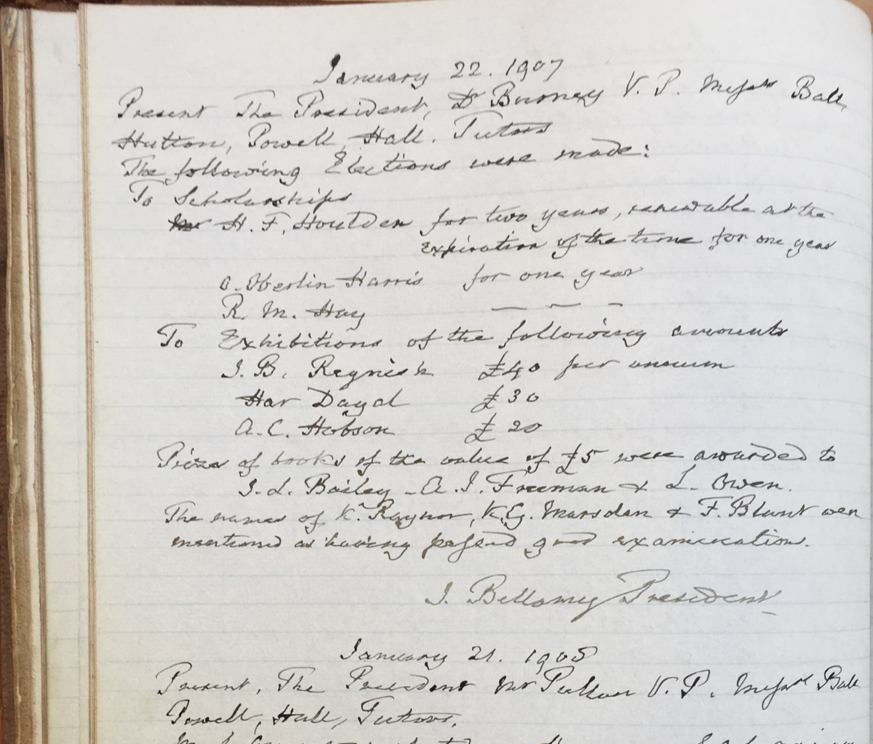 January 22. 1907
Present The President, Dr Burney V. P. Messrs Ball,
Hutton, Powell, Hall. Tutors
The following Elections were made:
To Scholarships
H. F. Houlden for two years, renewable at the
expiration of the time for one year
C. Oberlin Harris for one year
R. M. Hay — — —
To Exhibitions of the following amounts
J. B. £40 per annum
Har Dayal £30
A. C. Hobson £20
Prizes of books of the value of £5 were awarded to
J. L. Bailey – A. J. Freeman & L. Owen.
The names of K. Raynor, K. G. Marsden & F. Blunt were
mentioned as having passed good examination.
J. Bellamy President
January 21. 1908
Present, The President Mr Pullan V. P. Messrs Ball
Powell, Hall, Tutors.